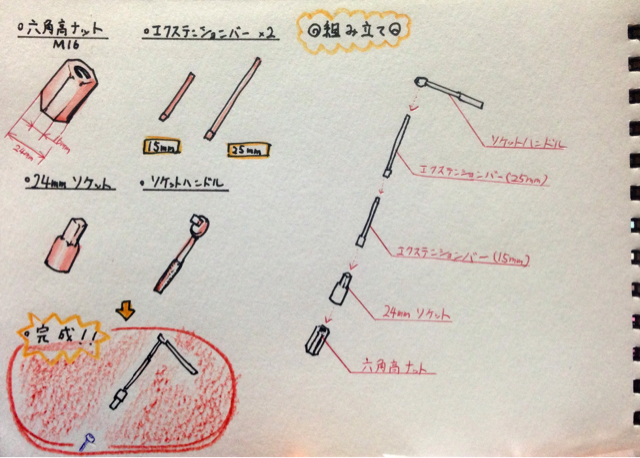 六角高ナット
M16
24mm
エクステンションバー ×2
15mm
25mm
24mm ソケット
ソケットハンドル
完成!!
組み立て
ソケットハンドル
エクステンションバー(25mm)
エクステンションバー(15mm)
24mm ソケット
六角高ナット